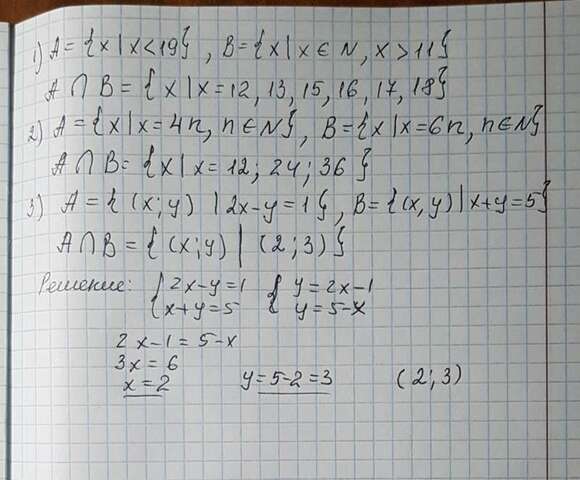 1) A = {x | x < 19} , B = {x | x ∈ N, x > 11}
A ∩ B = {x | x = 12, 13, 15, 16, 17, 18}
2) A = {x | x = 4n, n ∈ N}, B = {x | x = 6n, n ∈ N}
A ∩ B = {x | x = 12; 24; 36}
3) A = {(x; y) | 2x - y = 1}, B = {(x, y) | x + y = 5}
A ∩ B = {(x; y) | (2; 3)}
Решение: { 2x - y = 1 { y = 2x - 1
x + y = 5 y = 5 - x
2x - 1 = 5 - x
3x = 6
x = 2 y = 5 - 2 = 3 (2; 3)